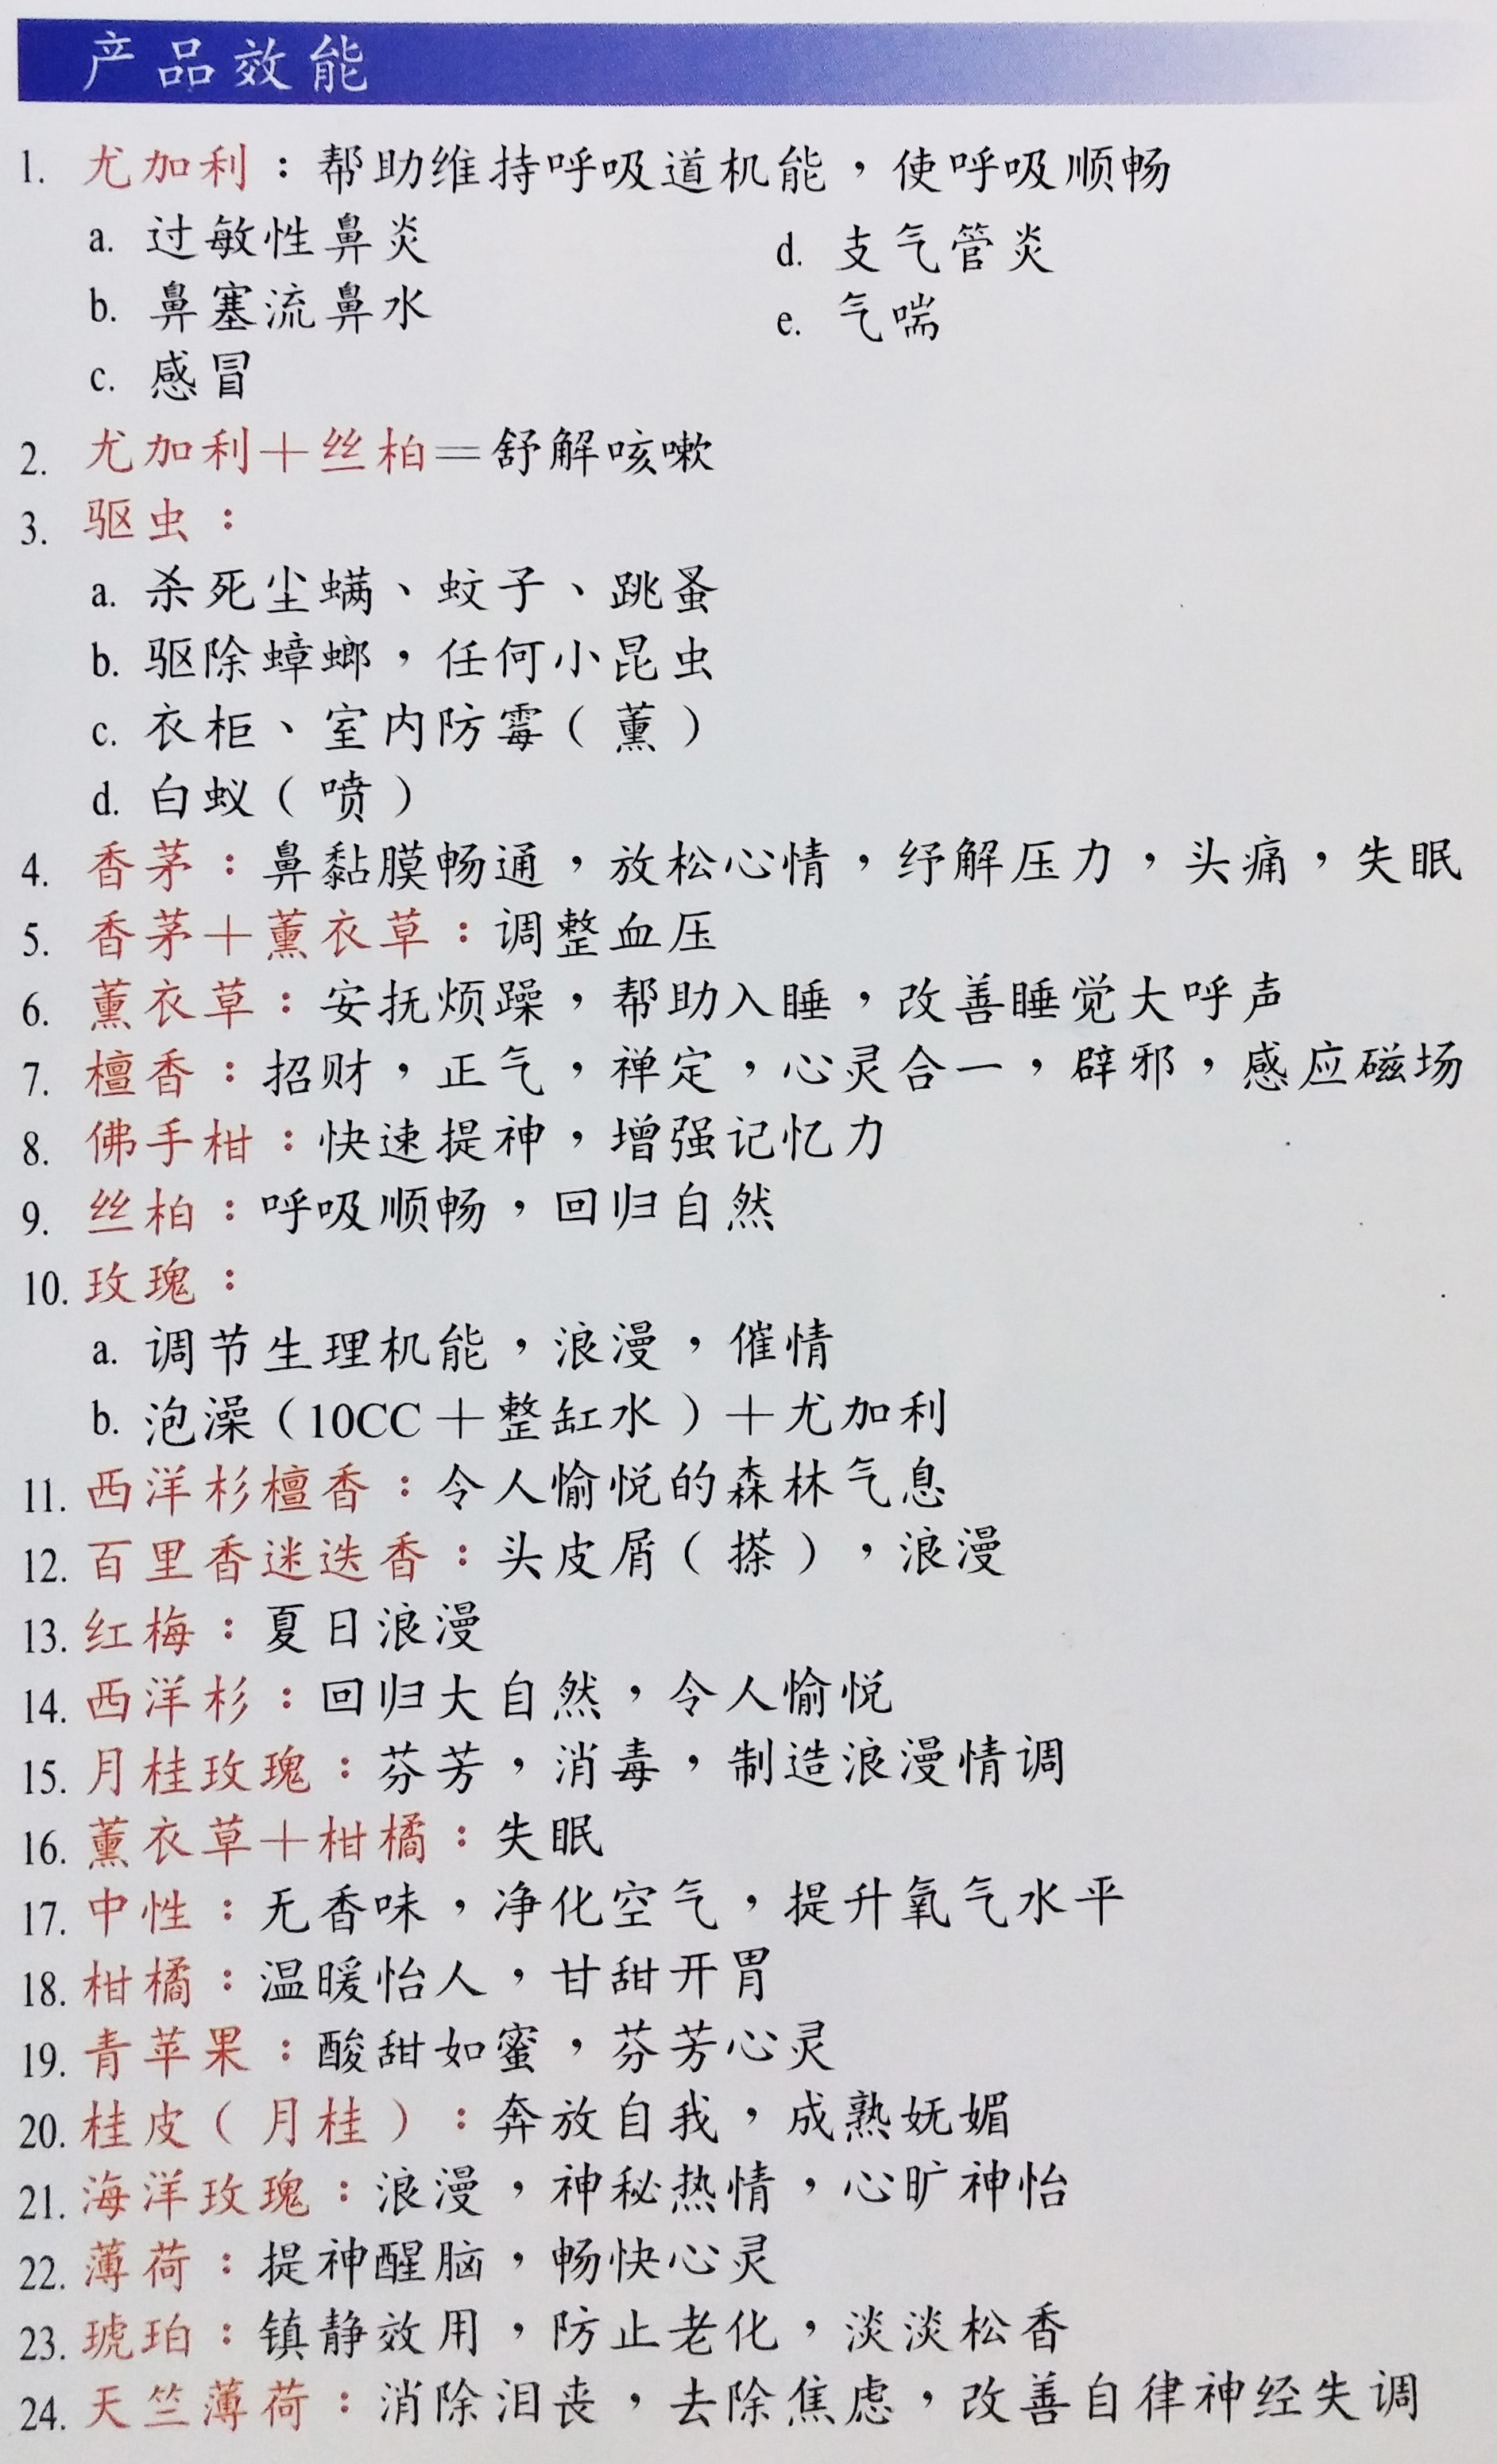 产品效能
1. 尤加利：帮助维持呼吸道机能，使呼吸顺畅
a. 过敏性鼻炎
b. 鼻塞流鼻水
c. 感冒
d. 支气管炎
e. 气喘
2. 尤加利＋丝柏＝舒解咳嗽
3. 驱虫：
a. 杀死尘螨、蚊子、跳蚤
b. 驱除蟑螂，任何小昆虫
c. 衣柜、室内防霉（薰）
d. 白蚁（喷）
4. 香茅：鼻黏膜畅通，放松心情，纾解压力，头痛，失眠
5. 香茅＋薰衣草：调整血压
6. 薰衣草：安抚烦躁，帮助入睡，改善睡觉大呼声
7. 檀香：招财，正气，禅定，心灵合一，辟邪，感应磁场
8. 佛手柑：快速提神，增强记忆力
9. 丝柏：呼吸顺畅，回归自然
10. 玫瑰：
a. 调节生理机能，浪漫，催情
b. 泡澡（10CC＋整缸水）＋尤加利
11. 西洋杉檀香：令人愉悦的森林气息
12. 百里香迷迭香：头皮屑（搽），浪漫
13. 红梅：夏日浪漫
14. 西洋杉：回归大自然，令人愉悦
15. 月桂玫瑰：芬芳，消毒，制造浪漫情调
16. 薰衣草＋柑橘：失眠
17. 中性：无香味，净化空气，提升氧气水平
18. 柑橘：温暖怡人，甘甜开胃
19. 青苹果：酸甜如蜜，芬芳心灵
20. 桂皮（月桂）：奔放自我，成熟妩媚
21. 海洋玫瑰：浪漫，神秘热情，心旷神怡
22. 薄荷：提神醒脑，畅快心灵
23. 琥珀：镇静效用，防止老化，淡淡松香
24. 天竺薄荷：消除泪丧，去除焦虑，改善自律神经失调